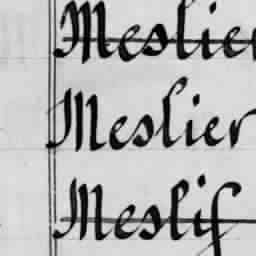 Meslier
Meslier
Meslif